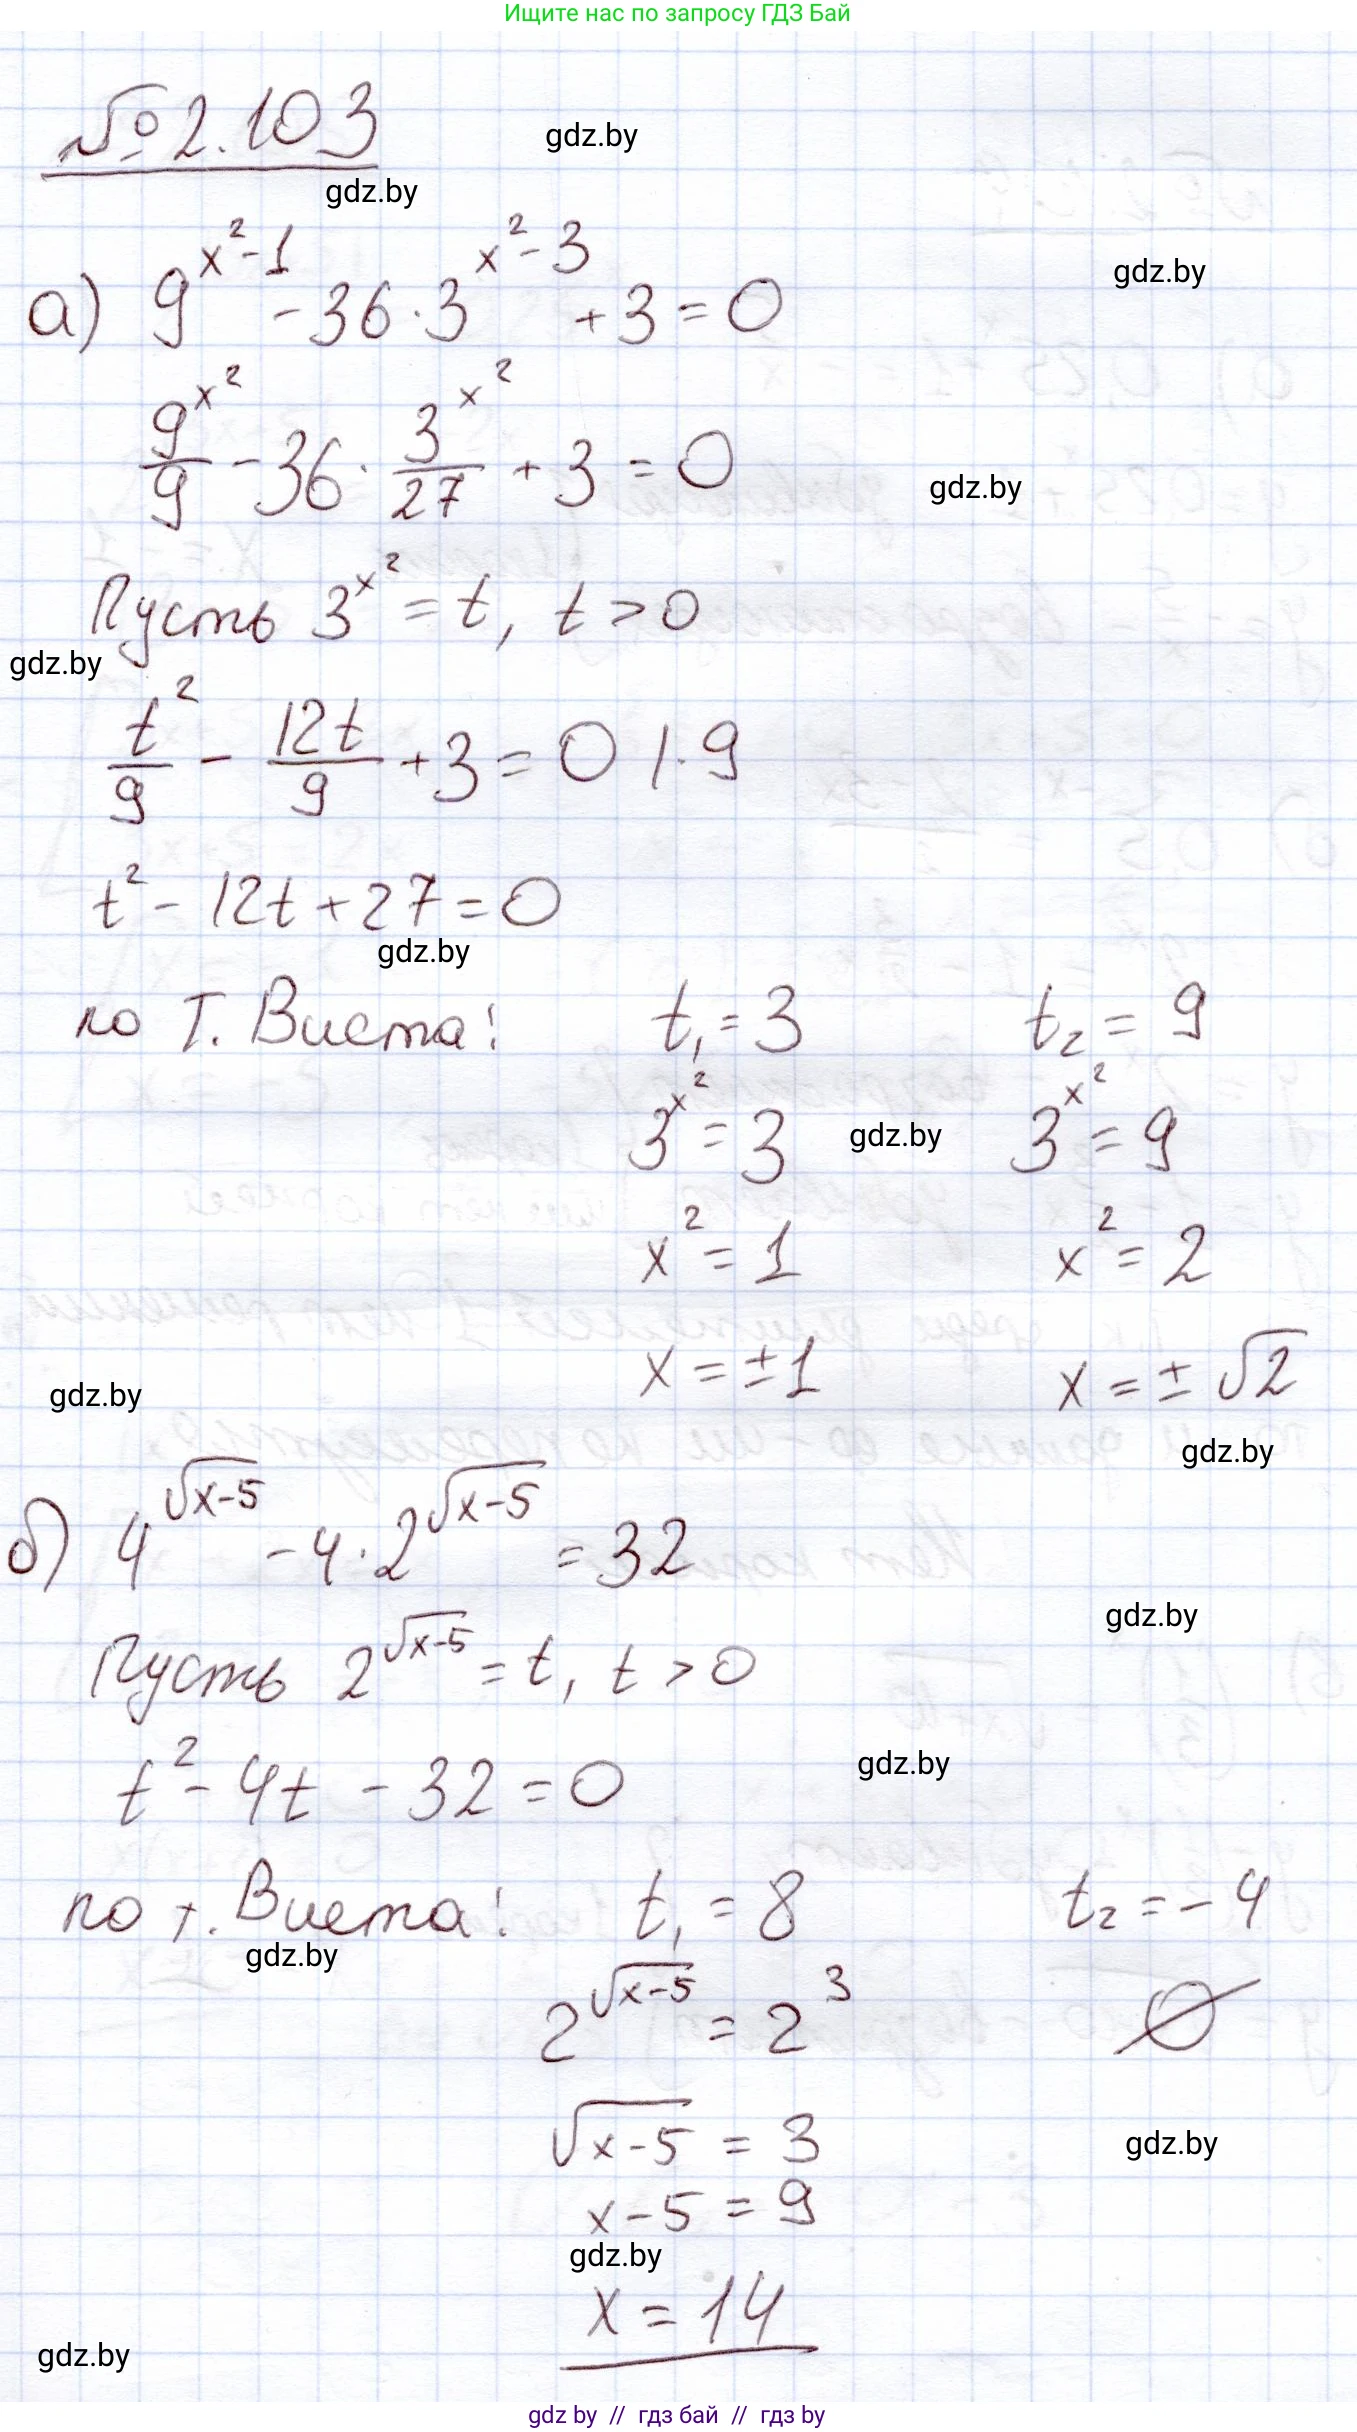 Ищите нас по запросу ГДЗ Бай
№2.103
gdz.by
gdz.by
а) 9^(x²-1) - 36·3^(x²-3) + 3 = 0
gdz.by
9^(x²)/9 - 36·3^(x²)/27 + 3 = 0
gdz.by
Пусть 3^(x²) = t, t > 0
gdz.by
t²/9 - 12t/9 + 3 = 0 |·9
t² - 12t + 27 = 0
gdz.by
по Т. Виета: t₁ = 3 t₂ = 9
3^(x²) = 3 gdz.by 3^(x²) = 9
x² = 1 x² = 2
x = ±1 x = ±√2
gdz.by
gdz.by
б) 4^(√(x-5)) - 4·2^(√(x-5)) = 32
gdz.by
Пусть 2^(√(x-5)) = t, t > 0
gdz.by
t² - 4t - 32 = 0
по т. Виета: t₁ = 8 t₂ = -4
gdz.by
2^(√(x-5)) = 2³ ∅
√(x-5) = 3
gdz.by
x-5 = 9
gdz.by
x = 14
gdz.by
gdz by // гдз бай // гдз by